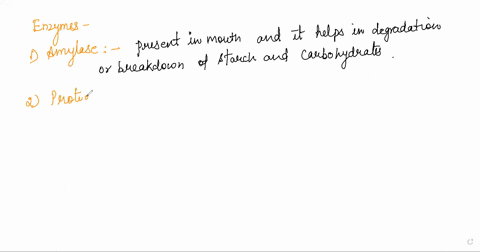 Enzymes -
1) Amylase :- present in mouth and it helps in degradation
or breakdown of starch and carbohydrates.
2) Prote